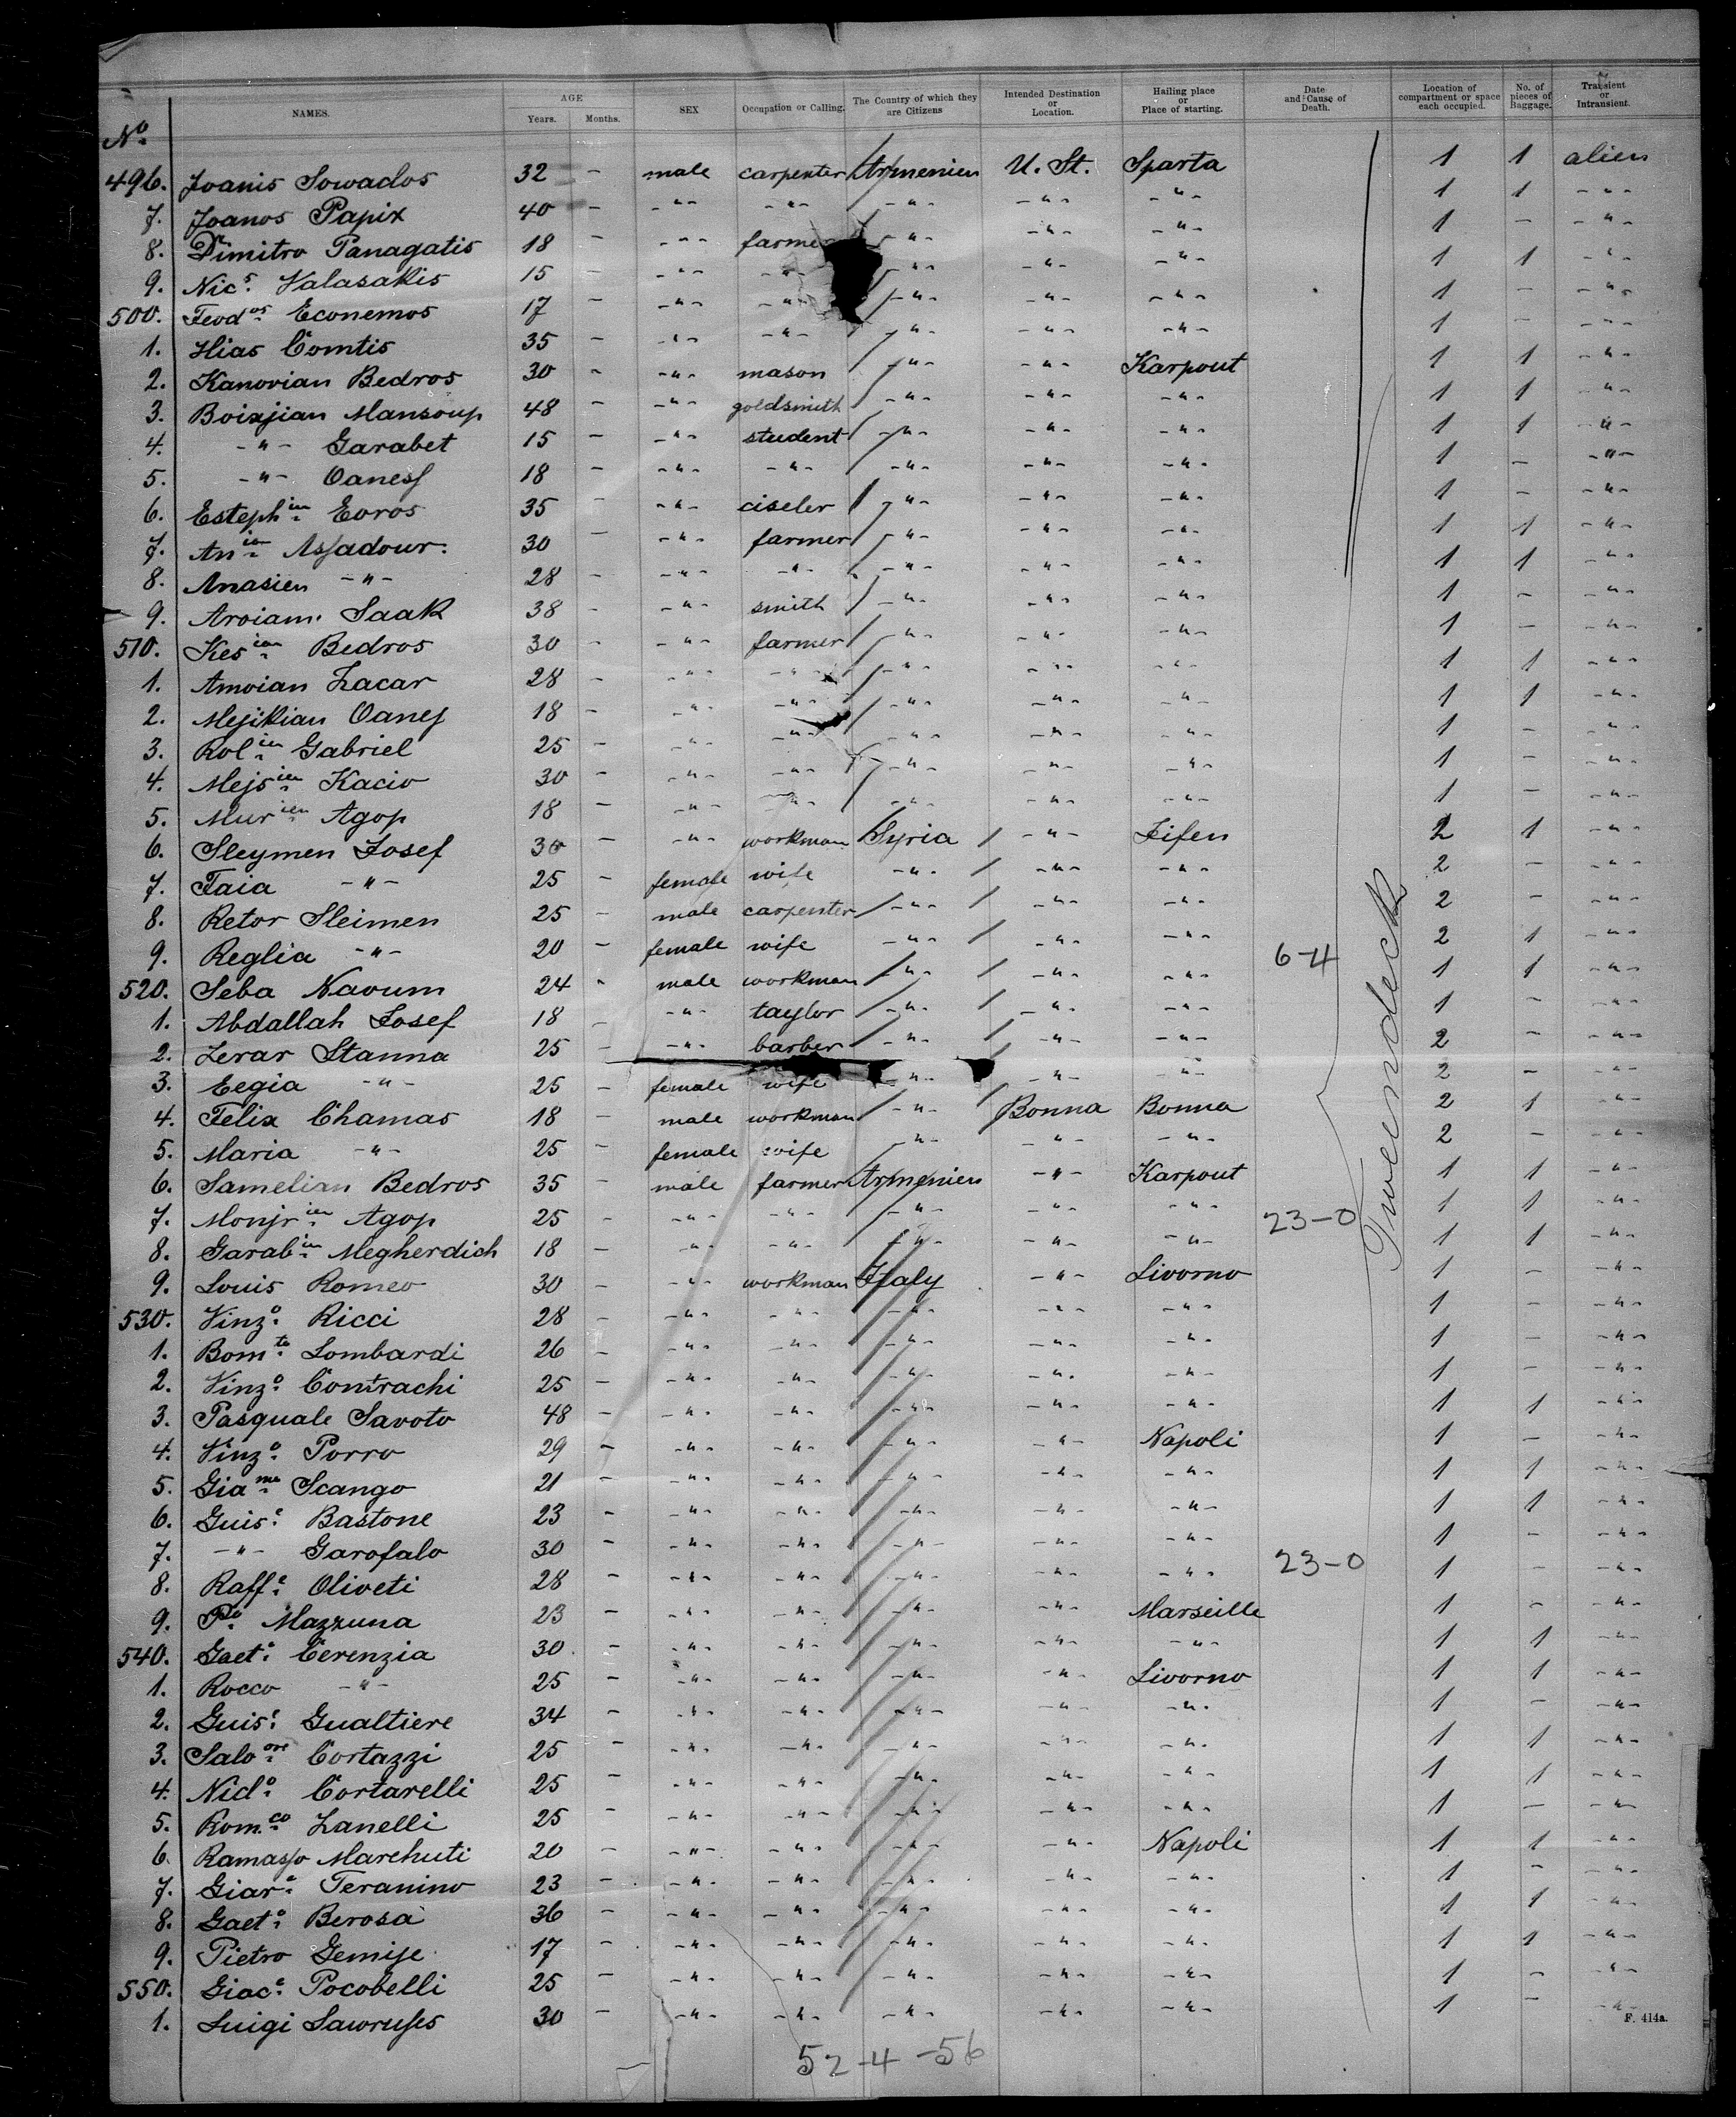 NAMES. AGE Years. Months. SEX Occupation or Calling. The Country of which they are Citizens Intended Destination or Location. Hailing place or Place of starting. Date and Cause of Death. Location of compartment or space each occupied. No. of pieces of Baggage. Transient or Intransient.
No.
496. Joanis Sowados 32 - male carpenter Armenien U. St. Sparta 1 1 alien
7. Joanos Papix 40 - -"- -"- -"- -"- -"- 1 1 -"-
8. Dimitro Panagatis 18 - -"- farmer -"- -"- -"- 1 - -"-
9. Nics. Valasakis 15 - -"- -"- -"- -"- -"- 1 1 -"-
500. Feodos Economos 17 - -"- -"- -"- -"- -"- 1 - -"-
1. Ilias Comtis 35 - -"- -"- -"- -"- -"- 1 - -"-
2. Kanovian Bedros 30 - -"- mason -"- -"- Karpout 1 1 -"-
3. Boiajian Mansoup 48 - -"- goldsmith -"- -"- -"- 1 1 -"-
4. -"- Garabet 15 - -"- student -"- -"- -"- 1 1 -"-
5. -"- Oaness 18 - -"- -"- -"- -"- -"- 1 - -"-
6. Estephien Evros 35 - -"- ciseler -"- -"- -"- 1 - -"-
7. Anien Assadour. 30 - -"- farmer -"- -"- -"- 1 1 -"-
8. Anasien -"- 28 - -"- -"- -"- -"- -"- 1 1 -"-
9. Aroiam. Saak 38 - -"- smith -"- -"- -"- 1 - -"-
510. Kesien Bedros 30 - -"- farmer -"- -"- -"- 1 - -"-
1. Amoian Zacar 28 - -"- -"- -"- -"- -"- 1 1 -"-
2. Mejikian Oanes 18 - -"- -"- -"- -"- -"- 1 1 -"-
3. Rolien Gabriel 25 - -"- -"- -"- -"- -"- 1 - -"-
4. Mejsien Kacio 30 - -"- -"- -"- -"- -"- 1 - -"-
5. Murien Agop 18 - -"- -"- -"- -"- -"- 1 - -"-
6. Sleymen Josef 30 - -"- workman Syria -"- Fifen 2 1 -"-
7. Taia -"- 25 - female wife -"- -"- -"- 2 - -"-
8. Retor Sleimen 25 - male carpenter -"- -"- -"- 2 - -"-
9. Reglia -"- 20 - female wife -"- -"- -"- 6-4 2 1 -"-
520. Seba Navum 24 - male workman -"- -"- -"- 1 1 -"-
1. Abdallah Josef 18 - -"- taylor -"- -"- -"- 1 - -"-
2. Zerar Stanna 25 - -"- barber -"- -"- -"- 2 - -"-
3. Eegia -"- 25 - female wife -"- -"- -"- 2 - -"-
4. Felix Chamas 18 - male workman -"- Bonna Bonna 2 1 -"-
5. Maria -"- 25 - female wife -"- -"- -"- 2 - -"-
6. Samelian Bedros 35 - male farmer Armenien -"- Karpout 1 1 -"-
7. Monjrien Agop 25 - -"- -"- -"- -"- -"- 23-0 1 1 -"-
8. Garabien Megherdich 18 - -"- -"- -"- -"- -"- 1 1 -"-
9. Louis Romeo 30 - -"- workman Italy -"- Livorno 1 - -"-
530. Vinzo. Ricci 28 - -"- -"- -"- -"- -"- 1 - -"-
1. Bomto. Lombardi 26 - -"- -"- -"- -"- -"- 1 - -"-
2. Vinzo. Contrachi 25 - -"- -"- -"- -"- -"- 1 - -"-
3. Pasquale Savoto 48 - -"- -"- -"- -"- -"- 1 1 -"-
4. Vinzo. Porro 29 - -"- -"- -"- -"- Napoli 1 - -"-
5. Giamo Scango 21 - -"- -"- -"- -"- -"- 1 1 -"-
6. Guise. Bastone 23 - -"- -"- -"- -"- -"- 1 1 -"-
7. -"- Garofalo 30 - -"- -"- -"- -"- -"- 1 - -"-
8. Raffe. Oliveti 28 - -"- -"- -"- -"- -"- 23-0 1 - -"-
9. Po. Mazzuna 23 - -"- -"- -"- -"- Marseille 1 - -"-
540. Gaeto. Cerenzia 30 - -"- -"- -"- -"- -"- 1 1 -"-
1. Rocco -"- 25 - -"- -"- -"- -"- Livorno 1 1 -"-
2. Guise. Gualtiere 34 - -"- -"- -"- -"- -"- 1 - -"-
3. Saloore Cortazzi 25 - -"- -"- -"- -"- -"- 1 1 -"-
4. Nido. Cortarelli 25 - -"- -"- -"- -"- -"- 1 1 -"-
5. Romco. Zanelli 25 - -"- -"- -"- -"- -"- 1 - -"-
6. Ramasso Marchuti 20 - -"- -"- -"- -"- Napoli 1 1 -"-
7. Giaro. Teranino 23 - -"- -"- -"- -"- -"- 1 - -"-
8. Gaeto. Berosa 36 - -"- -"- -"- -"- -"- 1 1 -"-
9. Pietro Gemise 17 - -"- -"- -"- -"- -"- 1 1 -"-
550. Giace. Pocobelli 25 - -"- -"- -"- -"- -"- 1 - -"-
1. Luigi Sawruses 30 - -"- -"- -"- -"- -"- 1 - -"-
Tweendeck
F. 414a.
52-4-56